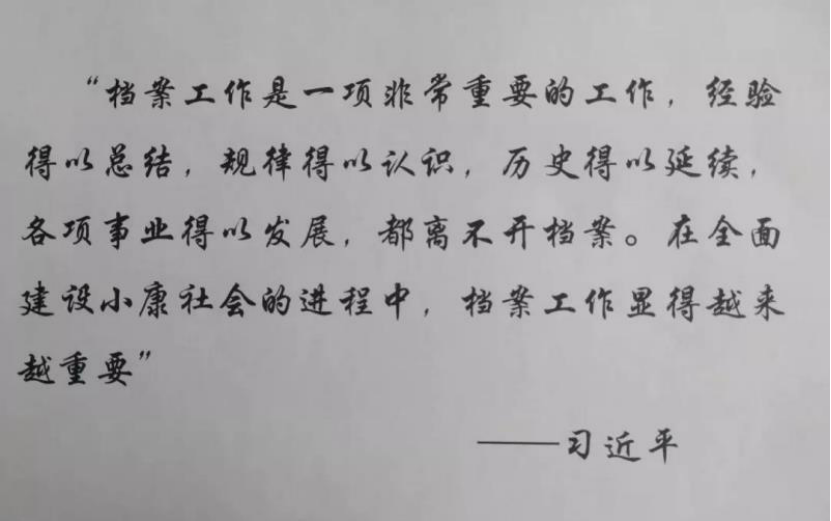 “档案工作是一项非常重要的工作，经验
得以总结，规律得以认识，历史得以延续，
各项事业得以发展，都离不开档案。在全面
建设小康社会的进程中，档案工作显得越来
越重要”
——习近平